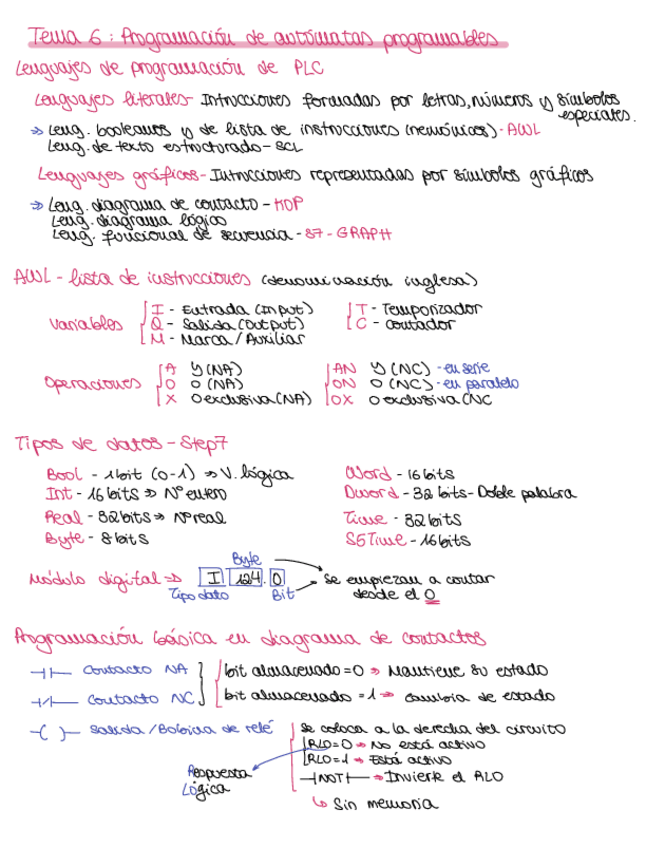 Tema 6: Programación de autómatas programables
Lenguajes de programación de PLC
Lenguajes literales- Intrucciones formadas por letras, números y símbolos especiales.
⇒ Leng. booleanos y de lista de instrucciones (nemónicos) - AWL
Leng. de texto estructurado - SCL
Lenguajes gráficos - Intrucciones representadas por símbolos gráficos
⇒ Leng. diagrama de contacto - KOP
Leng. diagrama lógico
Leng. funcional de secuencia - S7 - GRAPH
AWL - lista de instrucciones (denominación inglesa)
Variables
I - Entrada (Input)
Q - Salida (Output)
M - Marca / Auxiliar
T - Temporizador
C - Contador
Operaciones
A Y (NA)
O O (NA)
X O exclusiva (NA)
AN Y (NC) - en serie
ON O (NC) - en paralelo
OX O exclusiva (NC
Tipos de datos - Step7
Bool - 1 bit (0-1) ⇒ V. lógica
Int - 16 bits ⇒ Nº entero
Real - 32 bits ⇒ Nº real
Byte - 8 bits
Word - 16 bits
Dword - 32 bits - Doble palabra
Time - 32 bits
S5Time - 16 bits
Byte
Módulo digital ⇒ I 124.0
Tipo dato Bit
Se empiezan a contar desde el 0
Programación básica en diagrama de contactos
⊣⊢ Contacto NA
⊣/⊢ Contacto NC
bit almacenado = 0 ⇒ Mantiene su estado
bit almacenado = 1 ⇒ cambia de estado
-( )- Salida / Bobina de relé
Se coloca a la derecha del circuito
RLO=0 → No está activo
RLO=1 → Está activo
⊣NOT⊢ → Invierte el RLO
↳ Sin memoria
Respuesta
Lógica